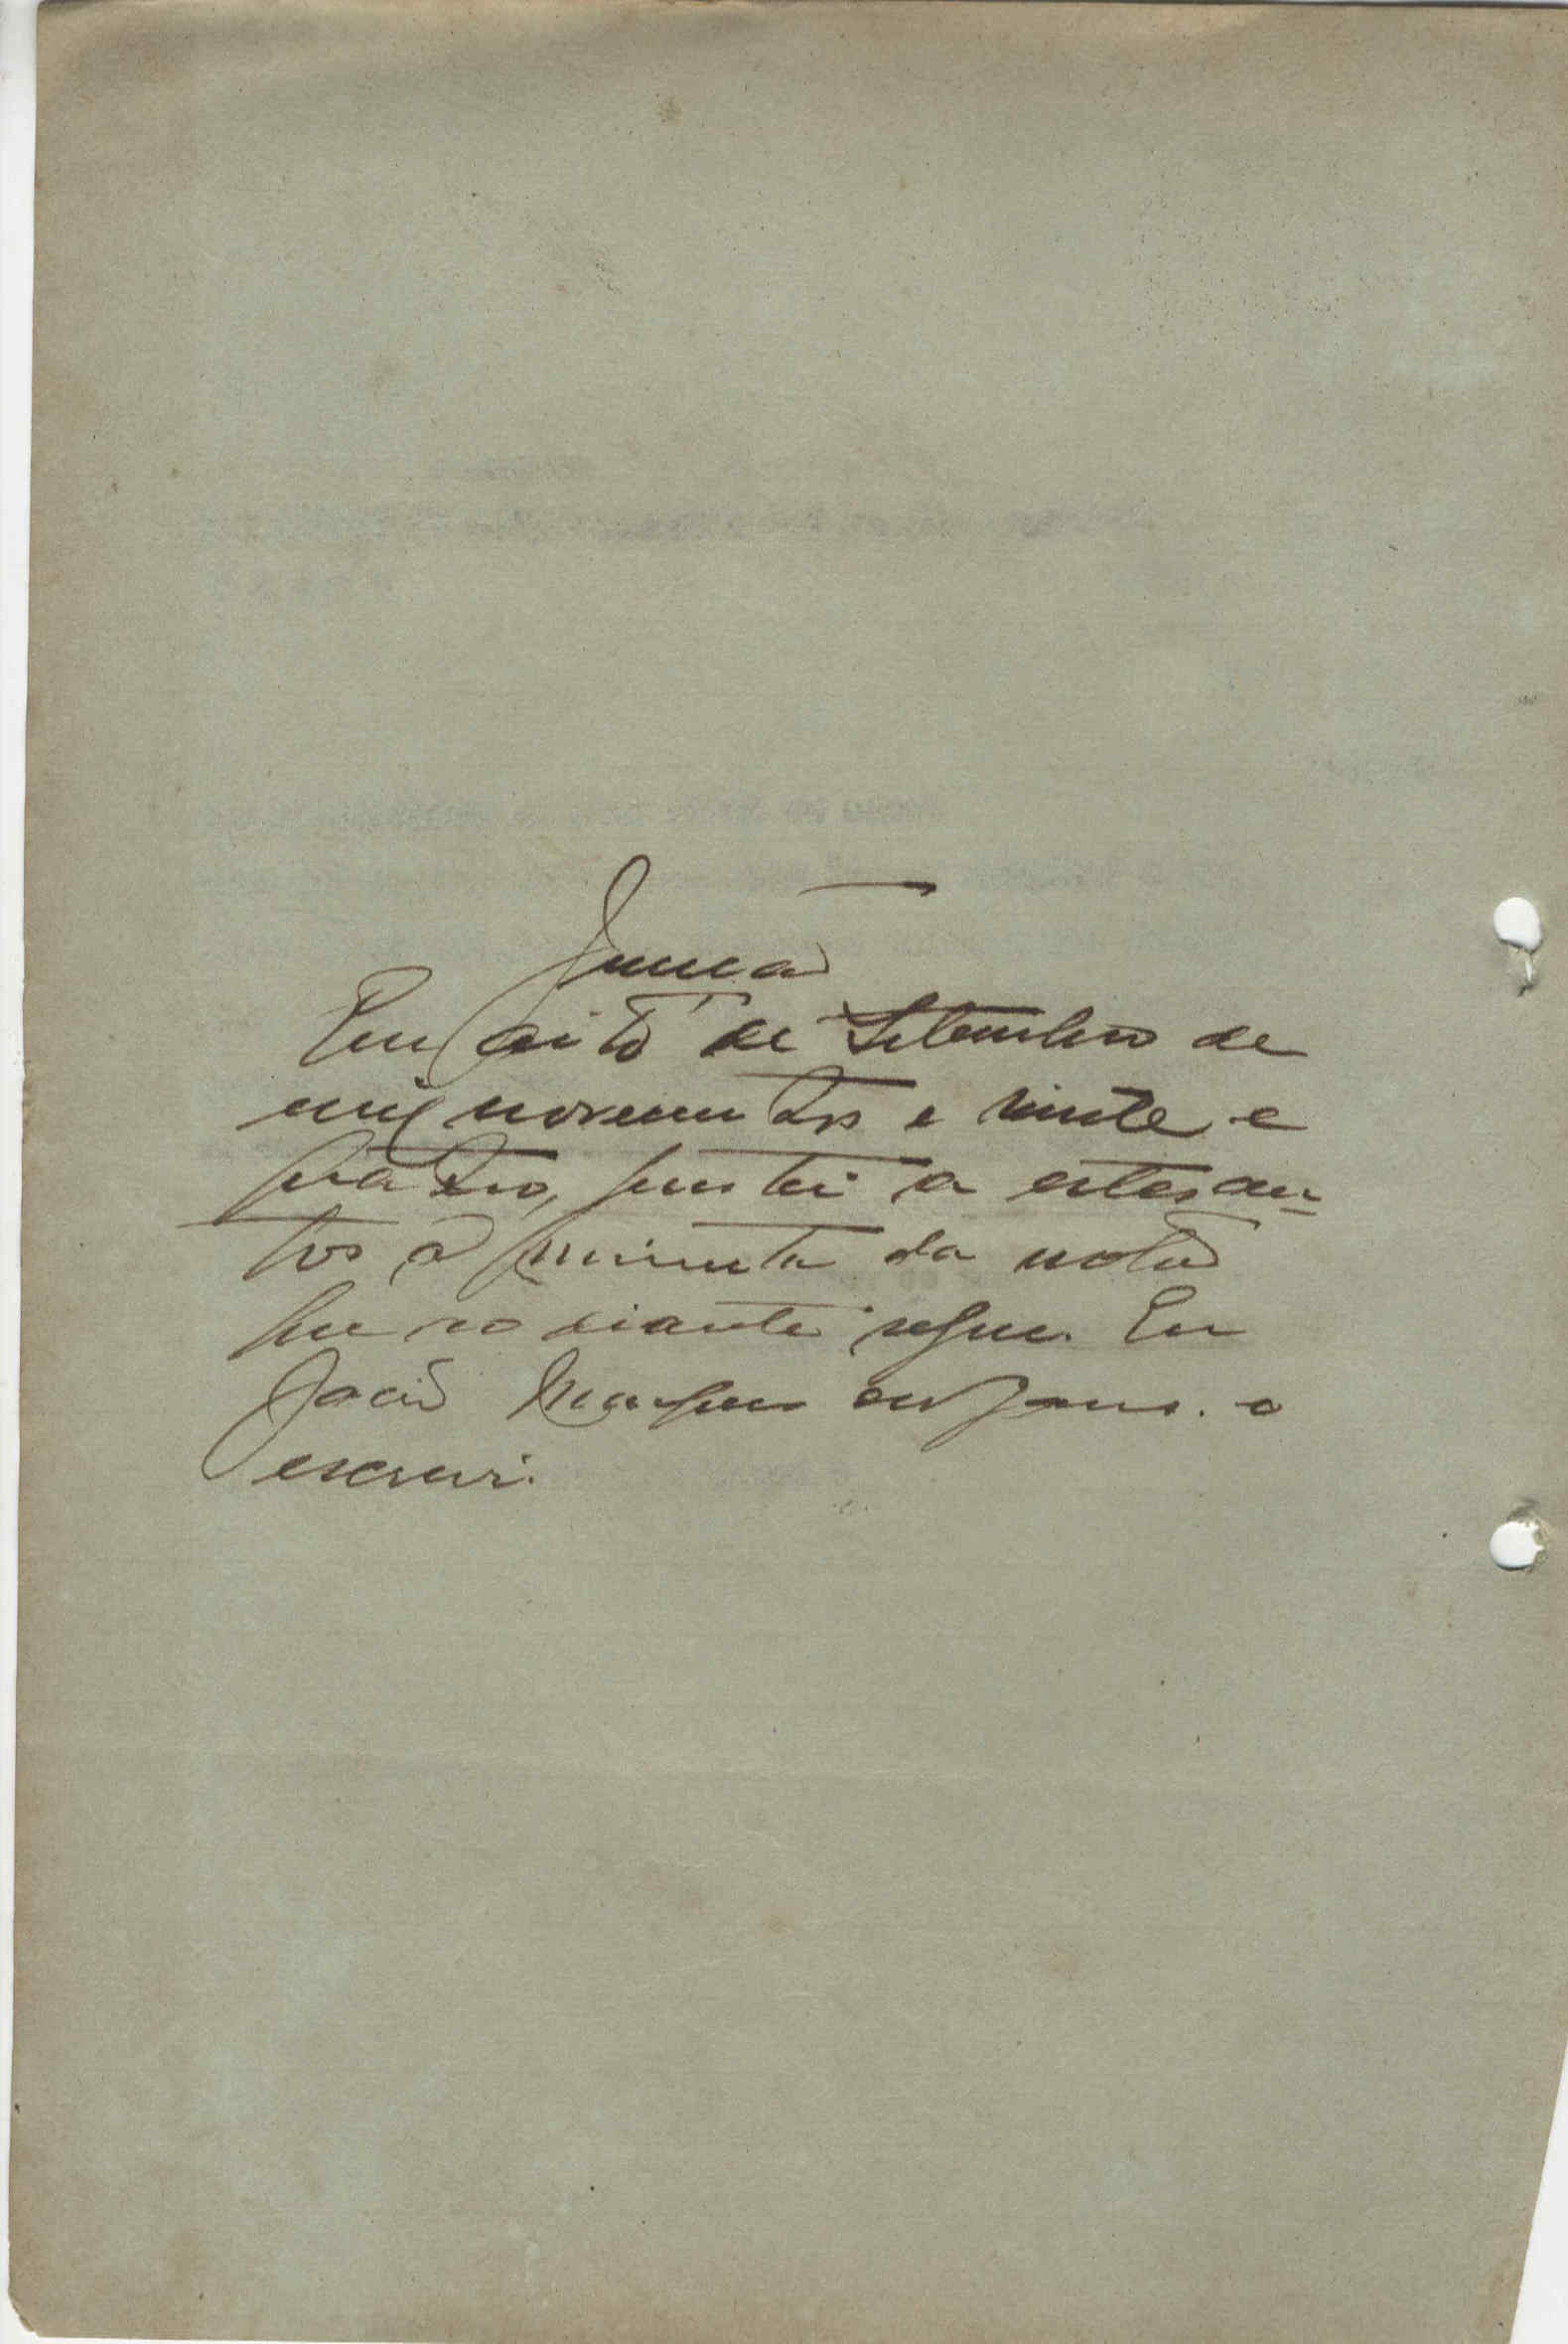 Juncção
Em oito de Setembro de
mil novecentos e vinte e
quatro, juntei a estes au-
tos a minuta da nota
que ao diante segue. Eu
João Marques
escrevi.